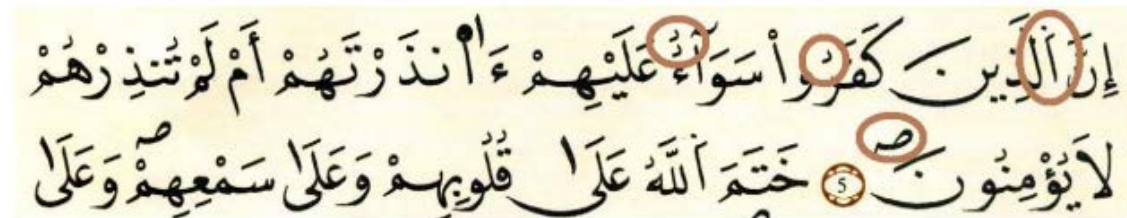 إِنَّ اَ۬لذِينَ كَفَرُواْ سَوَآءٌ عَلَيْهِمْ ءَا۬نذَرْتَهُمْ أَمْ لَمْ تُنذِرْهُمْ
لَا يُؤْمِنُونَۖ 5 خَتَمَ اَ۬للَّهُ عَلَىٰ قُلُوبِهِمْ وَعَلَىٰ سَمْعِهِمْۖ وَعَلَىٰ